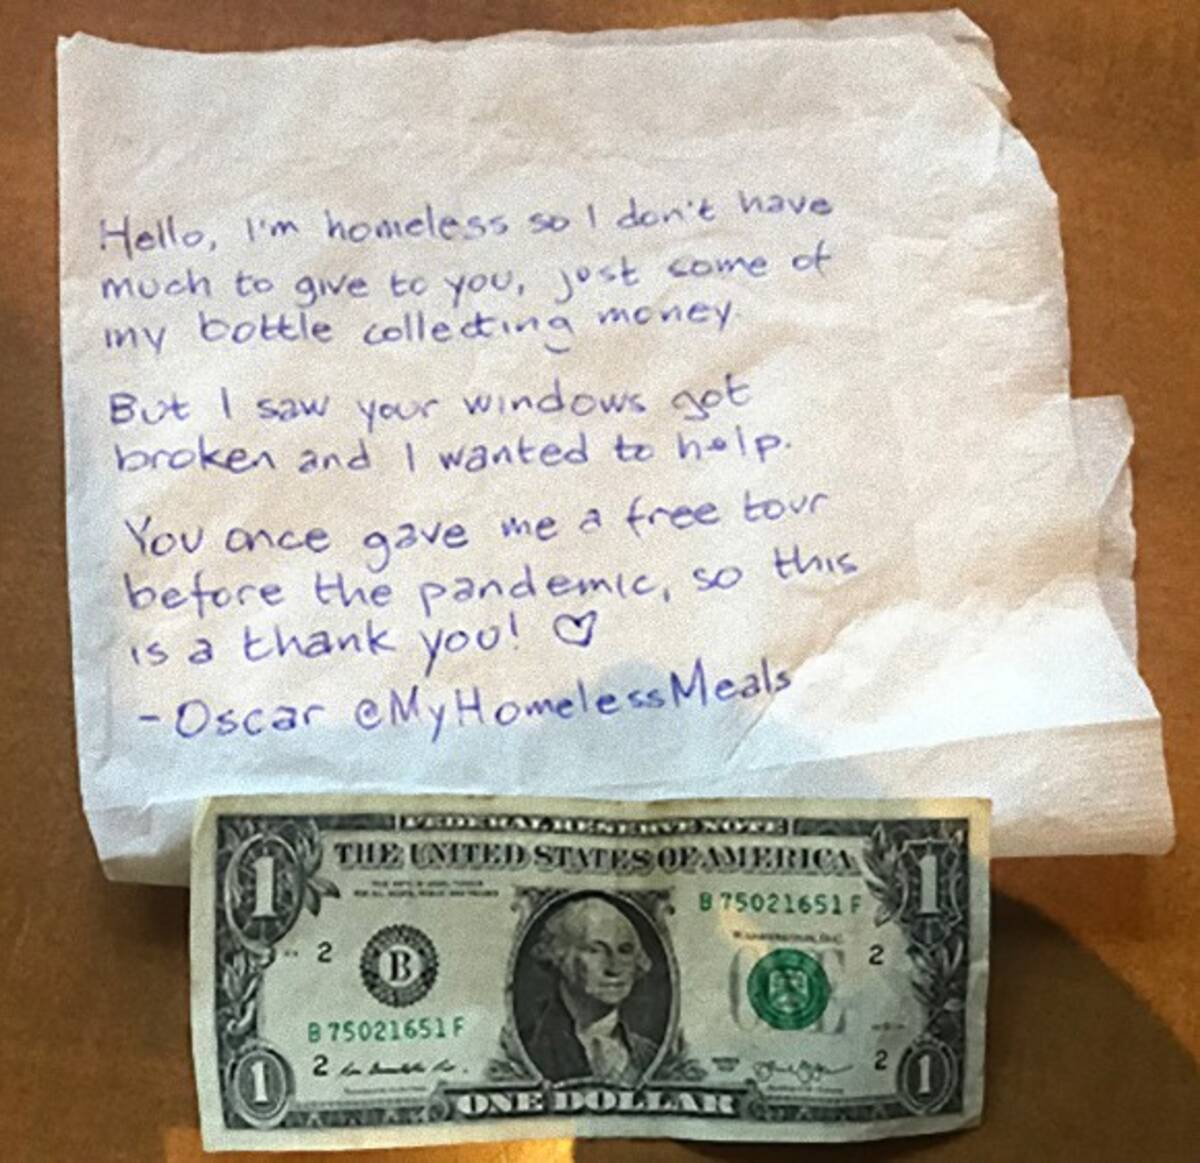 Hello, I'm homeless so I don't have
much to give to you, just some of
my bottle collecting money.
But I saw your windows got
broken and I wanted to help.
You once gave me a free tour
before the pandemic, so this
is a thank you! ♡
- Oscar @MyHomelessMeals
FEDERAL RESERVE NOTE
THE UNITED STATES OF AMERICA
1
1
B 75021651 F
WASHINGTON, D.C.
2
B
2
B 75021651 F
2
2
1
1
ONE DOLLAR